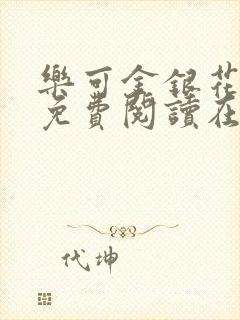 樂可金銀花
免費閱讀在
代坤